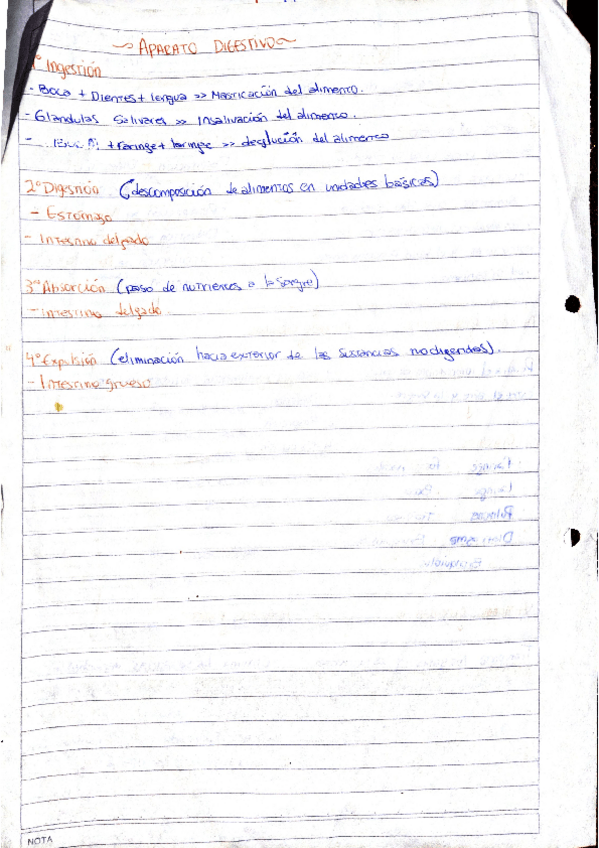 ~ APARATO DIGESTIVO ~
1º Ingestión
- Boca + Dientes + lengua >> Masticación del alimento.
- Glandulas Salivares >> Insalivación del alimento.
- + faringe + laringe >> deglución del alimento
2º Digestión (descomposición de alimentos en unidades básicas)
- Estomago
- Intestino delgado
3º Absorción (paso de nutrientes a la sangre)
- Intestino delgado.
4º Expulsión (eliminación hacia exterior de las sustancias no digeridas).
- Intestino grueso
NOTA